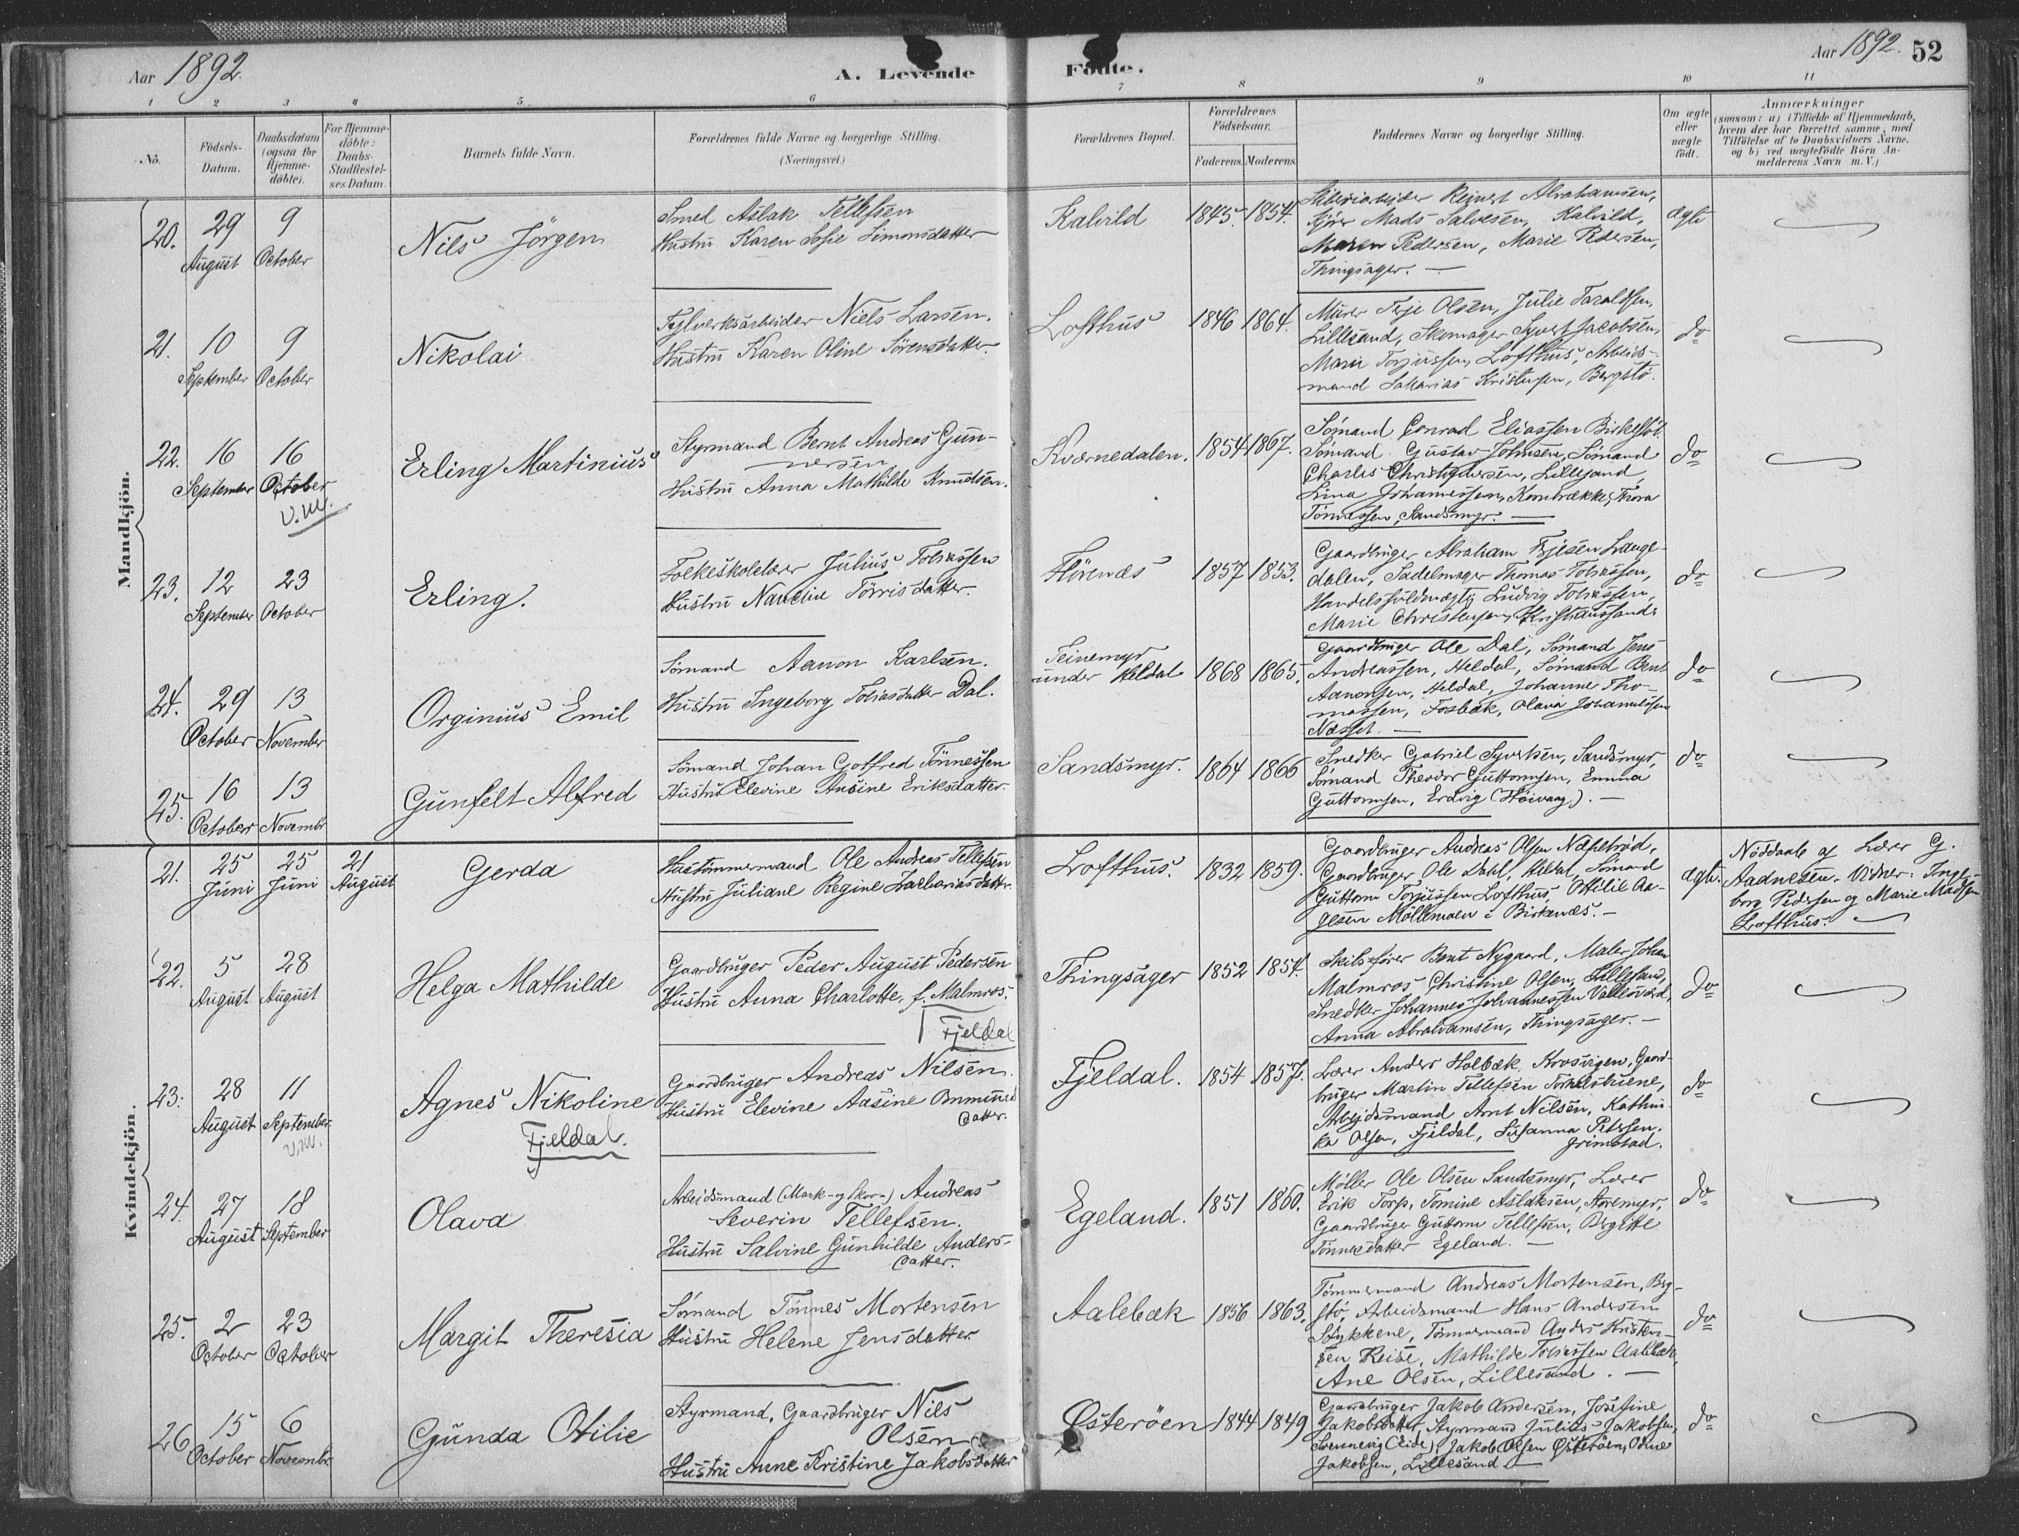 Aar 1892.
A. Levende Födte.
Aar 1892. 52
1 2 3 4 5 6 7 8 9 10 11
No.
Födsels-
Datum.
Daabsdatum
(ogsaa for
Hjemme-
döbte).
For Hjemme-
döbte:
Daabs-
Stadfæstel-
ses Datum.
Barnets fulde Navn.
Forældrenes fulde Navne og borgerlige Stilling.
(Næringsvei.)
Forældrenes Bopæl.
Forældrenes
Födselsaar.
Faderens. Moderens.
Faddernes Navne og borgerlige Stilling.
Om ægte
eller
uægte
födt.
Anmærkninger
(saasom: a) i Tilfælde af Hjemmedaab,
hvem der har forrettet samme, med
Tilföielse af to Daabsvidners Navne,
og b) ved uægtefödte Börn An-
melderens Navn m. V.)
Mandkjön.
20. 29 August 9 October
Nils Jörgen
Smed Aslak Tellefsen
Hustru Karen Sofie Simonsdatter
Kalvild 1845. 1854.
Reinert Abrahamsen,
Mads Salvesen, Kalvild,
Maren Pedersen, Marie Pedersen,
Thingsager. —
ægte
21. 10 September 9 October
Nikolai
Teglverksarbeider Niels Larsen.
Hustru Karen Oline Sörensdatter.
Lofthus 1846 1864.
Murer Terje Olsen, Julie Taraldsen,
Lillesand, Skomager Syvert Jacobsen,
Marie Torjussen, Lofthus, Arbeids-
mand Sakarias Kristensen, Bergstö.
do
22. 16 September 16 October
v.m.
Erling Martinius
Styrmand Bernt Andreas Gun-
nersen
Hustru Anna Mathilde Knudsen.
Kværnedalen. 1854 1867.
Sömand Conrad Eliassen
Sömand Gustav Johnsen, Sömand
Charles Christophersen, Lillesand,
Lina Johannessen, Kornbrække, Thora
Tönnessen, Sandsmyr. —
do
23. 12 September 23 October
Erling.
Folkeskolelærer Julius Tobiassen
Hustru Nanchie Törrisdatter.
Hörenæs 1857 1853.
Gaardbruger Abraham Terjesen Lange-
dalen, Sadelmager Thomas Tobiassen,
Handelsfuldmægtig Ludvig Tobiassen,
Marie Christensen, Kristianssand.
do
24. 29 October 13 November
Orginius Emil
Sömand Aanon Karlsen.
Hustru Ingeborg Tobiasdatter Dal.
Teinemyr
under Heldal 1868 1865.
Gaardbruger Ole Dal, Sömand Jens
Andreassen, Heldal, Sömand Bent
Aanonsen, Heldal, Johanne Tho-
massen, Fosbæk, Olava Johannessen
Næsset. —
do
25. 16 October 13 Novembr
Gunfelt Alfred
Sömand Johan Gotfred Tönnessen
Hustru Elevine Ansine Eriksdatter.
Sandsmyr. 1864 1866
Snedker Gabriel Syvertsen, Sandsmyr,
Sömand Theodor Guttormsen, Emma
Guttormsen, Erdvig (Höivaag). —
do
Kvindekjön.
21. 25 Juni 25 Juni 21 August
Gerda
Hustömmermand Ole Andreas Tellefsen
Hustru Juliane Regine Zachariasdatter.
Lofthus. 1832 1859.
Gaardbruger Andreas Olsen Næsebrød,
Gaardbruger Ole Dahl, Heldal, Sömand
Guttorm Torjussen Lofthus, Ottilie Aa-
gesen Möllemoen i Birkenæs. —
ægte.
Nöddaab af Lærer G.
Aadnesen. Vidner: Inge-
borg Pedersen og Marie Madsen
Lofthus. —
22. 5 August 28 August
Helga Mathilde
Gaardbruger Peder August Pedersen
Hustru Anna Charlotte, f. Malmros.
Thingsager 1852 1854.
Skibsförer Bent Nygaard, Maler Johan
Malmros, Christine Olsen, Lillesand,
Snedker Johannes Johannessen Vallesverd,
Anna Abrahamsen, Thingsager. —
do
23. 28 August 11 September
v.m.
Agnes Nikoline
Fjeldal.
Fjeldal
Gaardbruger Andreas Nilsen.
Hustru Elevine Aasine Ommuns
datter.
Fjeldal. 1854 1857.
Lærer Anders Holbæk, Krosvigen, Gaard-
bruger Martin Tellefsen
Arbeidsmand Arnt Nilsen, Kathin-
ka Olsen, Fjeldal, Susanna Petersen,
Grimstad.
do
24. 27 August 18 September
Olava
Arbeidsmand (Mark- og Skov-) Andreas
Severin Tellefsen.
Hustru Salvine Gunhilde Anders-
datter.
Egeland. 1851 1860.
Möller Ole Olsen Sandsmyr, Lærer
Erik Torp, Tomine Aslaksen,
Gaardbruger Guttorm Tellefsen, Birgitte
Tönnesdatter Egeland. —
do
25. 2 October 23 October
Margit Theresia
Sömand Tönnes Mortensen
Hustru Helene Jensdatter
Aalebæk 1856 1863.
Tömmermand Andreas Mortensen, Berg-
stö, Arbeidsmand Hans Andersen
Stykkene, Tömmermand Anders Kristen-
sen Reise, Mathilde Tobiassen Aalebæk,
Ane Olsen, Lillesand. —
do
26 15 October 6 Novembr.
Gunda Otilie
Styrmand, Gaardbruger Nils
Olsen
Hustru Anne Kristine Jakobsdatter
Østeröen 1844 1849
Gaardbruger Jakob Andersen, Josefine
Jakobsdatter, Styrmand Julius Jakobsen,
Svennevig (Eide), Jakob Olsen Østeröen, Odine
Jakobsen, Lillesand —
do